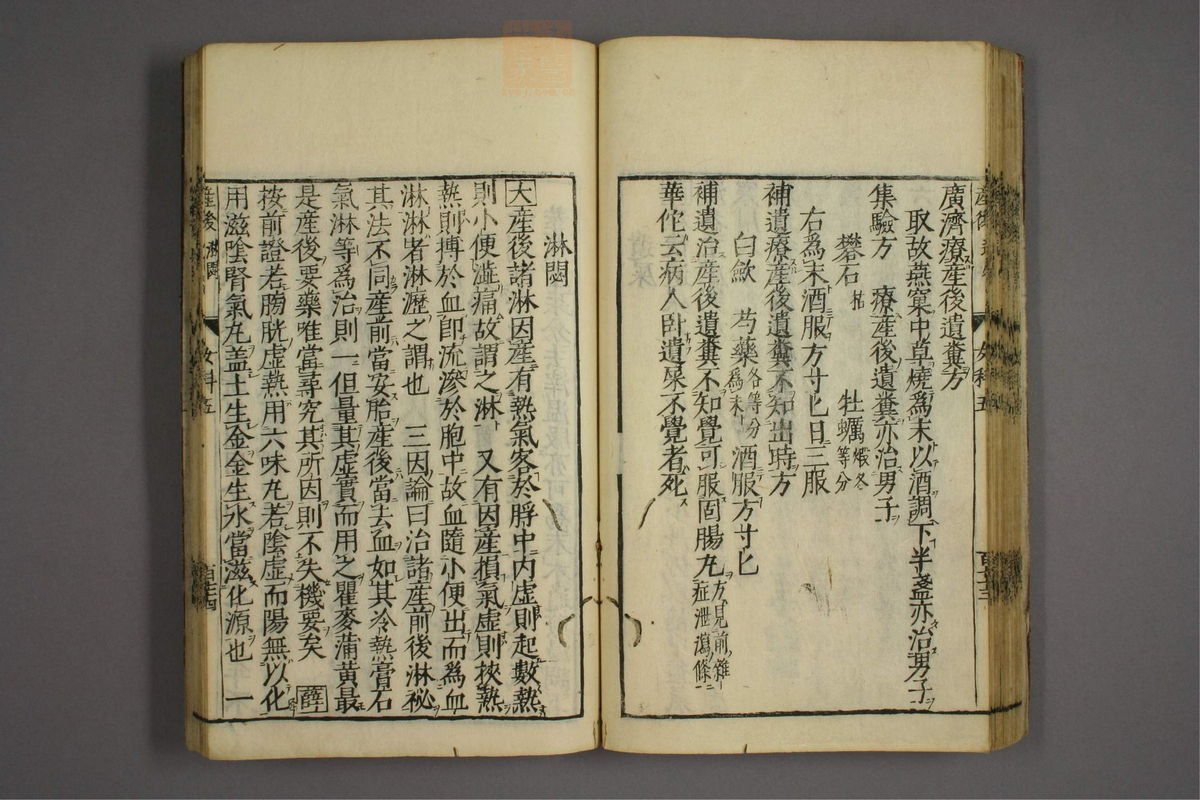 廣濟療產後遺糞方
取故燕窠中草燒爲末以酒調下半盞亦治男子
集驗方 療產後遺糞亦治男子
礬石枯 牡蠣煅各等分
右爲末酒服方寸匕日三服
補遺療產後遺糞不知出時方
白斂 芍藥各等分爲末 酒服方寸匕
補遺治產後遺糞不知覺可服固腸丸方見前雜症泄瀉條
華佗云病人卧遺屎不覺者死
淋閟
大產後諸淋因產有熱氣客於脬中内虛則起數熱
則小便澁痛故謂之淋 又有因產損氣虛則挾熱
熱則搏於血卽流滲於胞中故血隨小便出而爲血
淋淋者淋瀝之謂也 三因論曰治諸產前後淋秘
其法不同產前當安胎產後當去血如其冷熱膏石
氣淋等爲治則一但量其虛實而用之瞿麥蒲黄最
是產後要藥唯當尋究其所因則不失機要矣 薛
按前證若膀胱虛熱用六味丸若陰虛而陽無以化
用滋陰腎氣丸盖土生金金生水當滋化源也 一
產後 淋閟 女科五 百三十四